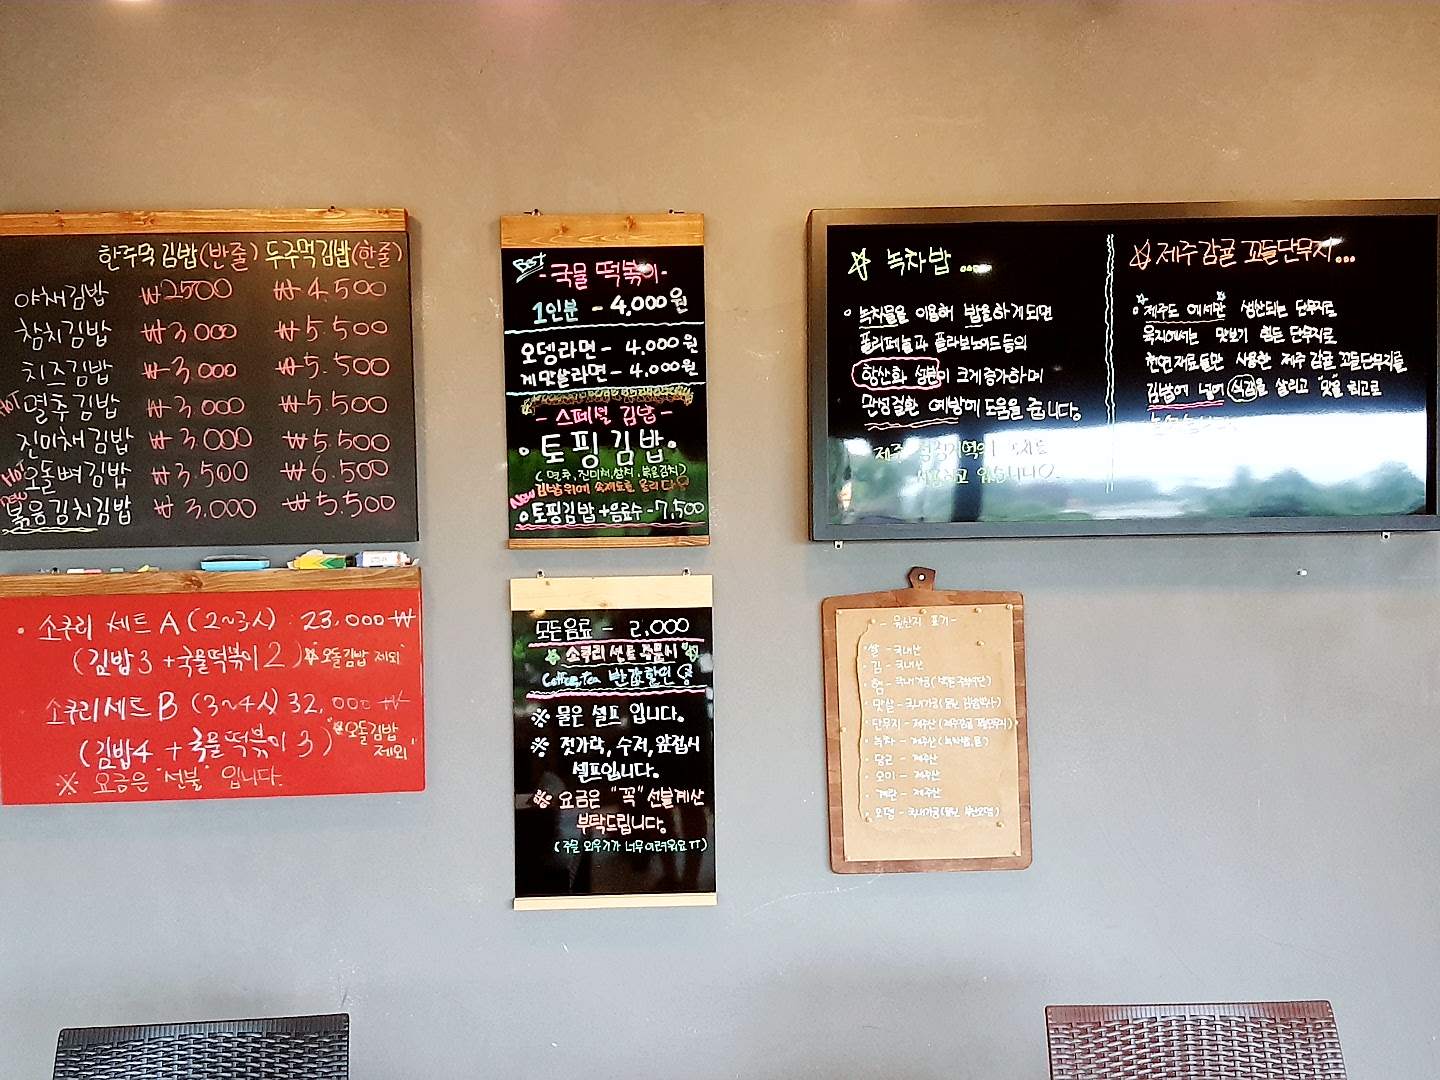 한주먹김밥(반줄) 두주먹김밥(한줄)
야채김밥 ₩2500 ₩4.500
참치김밥 ₩3.000 ₩5.500
치즈김밥 ₩3.000 ₩5.500
HOT 멸추김밥 ₩3.000 ₩5.500
진미채김밥 ₩3.000 ₩5.500
HOT 오돌뼈김밥 ₩3.500 ₩6.500
New 볶음김치김밥 ₩3.000 ₩5.500
• 소쿠리 세트 A (2~3人) 23,000₩
(김밥3 + 국물떡볶이2) "오돌김밥 제외"
소쿠리세트 B (3~4人) 32,000₩
(김밥4 + 국물떡볶이 3) "오돌김밥
제외"
※ 요금은 "선불" 입니다.
Best
- 국물 떡볶이 -
1인분 - 4,000원
오뎅라면 - 4.000원
게맛살라면 - 4,000원
- 스페셜 김밥 -
• 토핑김밥 •
(멸추, 진미채, 참치, 볶음김치)
김밥위에 속재료를 올리다
New 토핑김밥 + 음료수 - 7,500
모든음료 - 2,000
소쿠리 세트 주문시
Coffee, tea 반값할인
※ 물은 셀프 입니다.
※ 젓가락, 수저, 앞접시
셀프입니다.
※ 요금은 "꼭" 선불계산
부탁드립니다.
(주문 외우기가 너무어려워요 TT)
☆ 녹차밥 ....
• 녹차물을 이용해 밥을하게되면
폴리페놀과 플라보노이드등의
항산화 성분이 크게증가하며
만성질환 예방에 도움을 줍니다.
☆ 제주감귤 꼬들단무지...
• 제주도 에서만 생산되는 단무지로
육지에서는 맛보기 힘든 단무지로
천연재료들만 사용한 제주감귤 꼬들단무지를
김밥에 넣어 식감을 살리고 "맛"을 최고로
- 원산지 표기 -
• 쌀 - 국내산
• 김 - 국내산
• 햄 - 국내가공
• 맛살 - 국내가공
• 단무지 - 제주산 (제주감귤 꼬들단무지)
• 녹차 - 제주산
• 당근 - 제주산
• 오이 - 제주산
• 계란 - 제주산
• 오뎅 - 국내가공